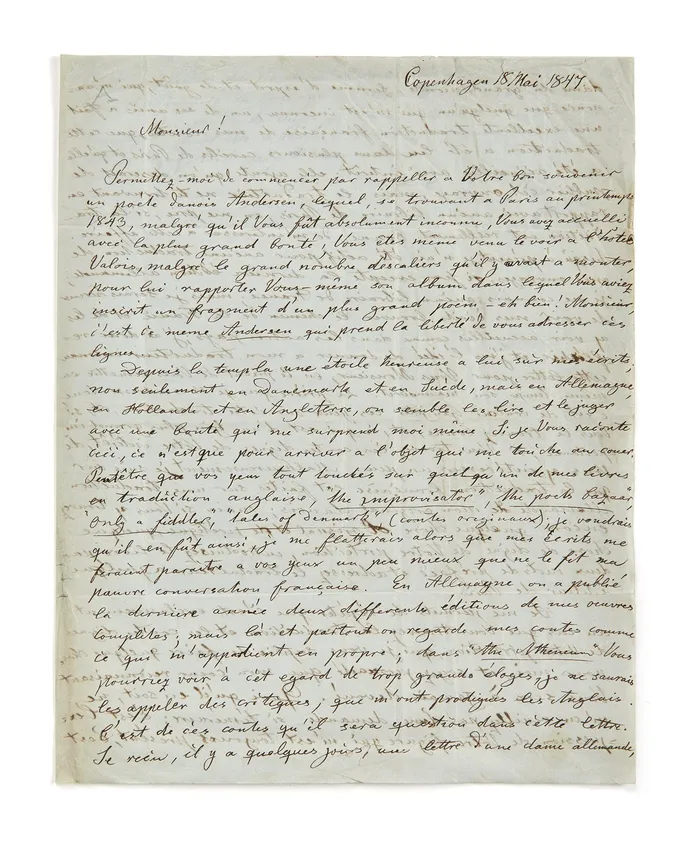 Copenhagen 18 Mai 1847
Monsieur!
Permettez-moi de commencer par rappeller a Vôtre bon souvenir
un poëte danois Andersen, lequel, se trouvant a Paris au printemps
1843, malgré qu'il Vous fût absolument inconnu, Vous avez accueilli
avec la plus grand bonté; Vous êtes même venu le voir à l'hôtel
Valois, malgré le grand nombre d'escaliers qu'il y avait a monter,
pour lui rapporter Vous-même son album dans lequel Vous aviez
inscrit un fragment d'un plus grand poëm – eh bien! Monsieur,
c'est ce meme Andersen qui prend la liberté de vous adresser ces
lignes.
Depuis la temps la une étoile heureuse a lui sur mes écrits;
non seulement en Danemark et en Suède, mais en Allemagne,
en Hollande et en Angleterre, on semble les lire et le juger
avec une bonté qui me surprend moi même. Si je Vous raconte
ceci, ce n'est que pour arriver a l'objet qui me touche au coeur.
Peutêtre que vos yeux tout touchés sur quelqu'un de mes livres
en traduction anglaise, "the improvisator", "the poets bazaar"
"Only a fiddler", "tales of denmark" (contes originaux), je voudrais
qu'il en fût ainsi, je me flatterais alors que mes écrits me
feraient paraitre a vos yeux un peu mieux que ne le fit ma
pauvre conversation française. En Allmagne on a publié
la derniere année deux differents éditions de mes oeuvres
complètes; mais là et partout on regarde mes contes comme
ce qui m'appartient en propre; dans "the Atheneum" Vous
pourriez voir à cet egard de trop grands éloges, je ne saurais
les appeler des critiques, que m'ont prodigués les Anglais.
C'est de ces contes qu'il sera question dans cette lettre.
Je reçu, il y a quelques jours, une lettre d'une dame allemande,